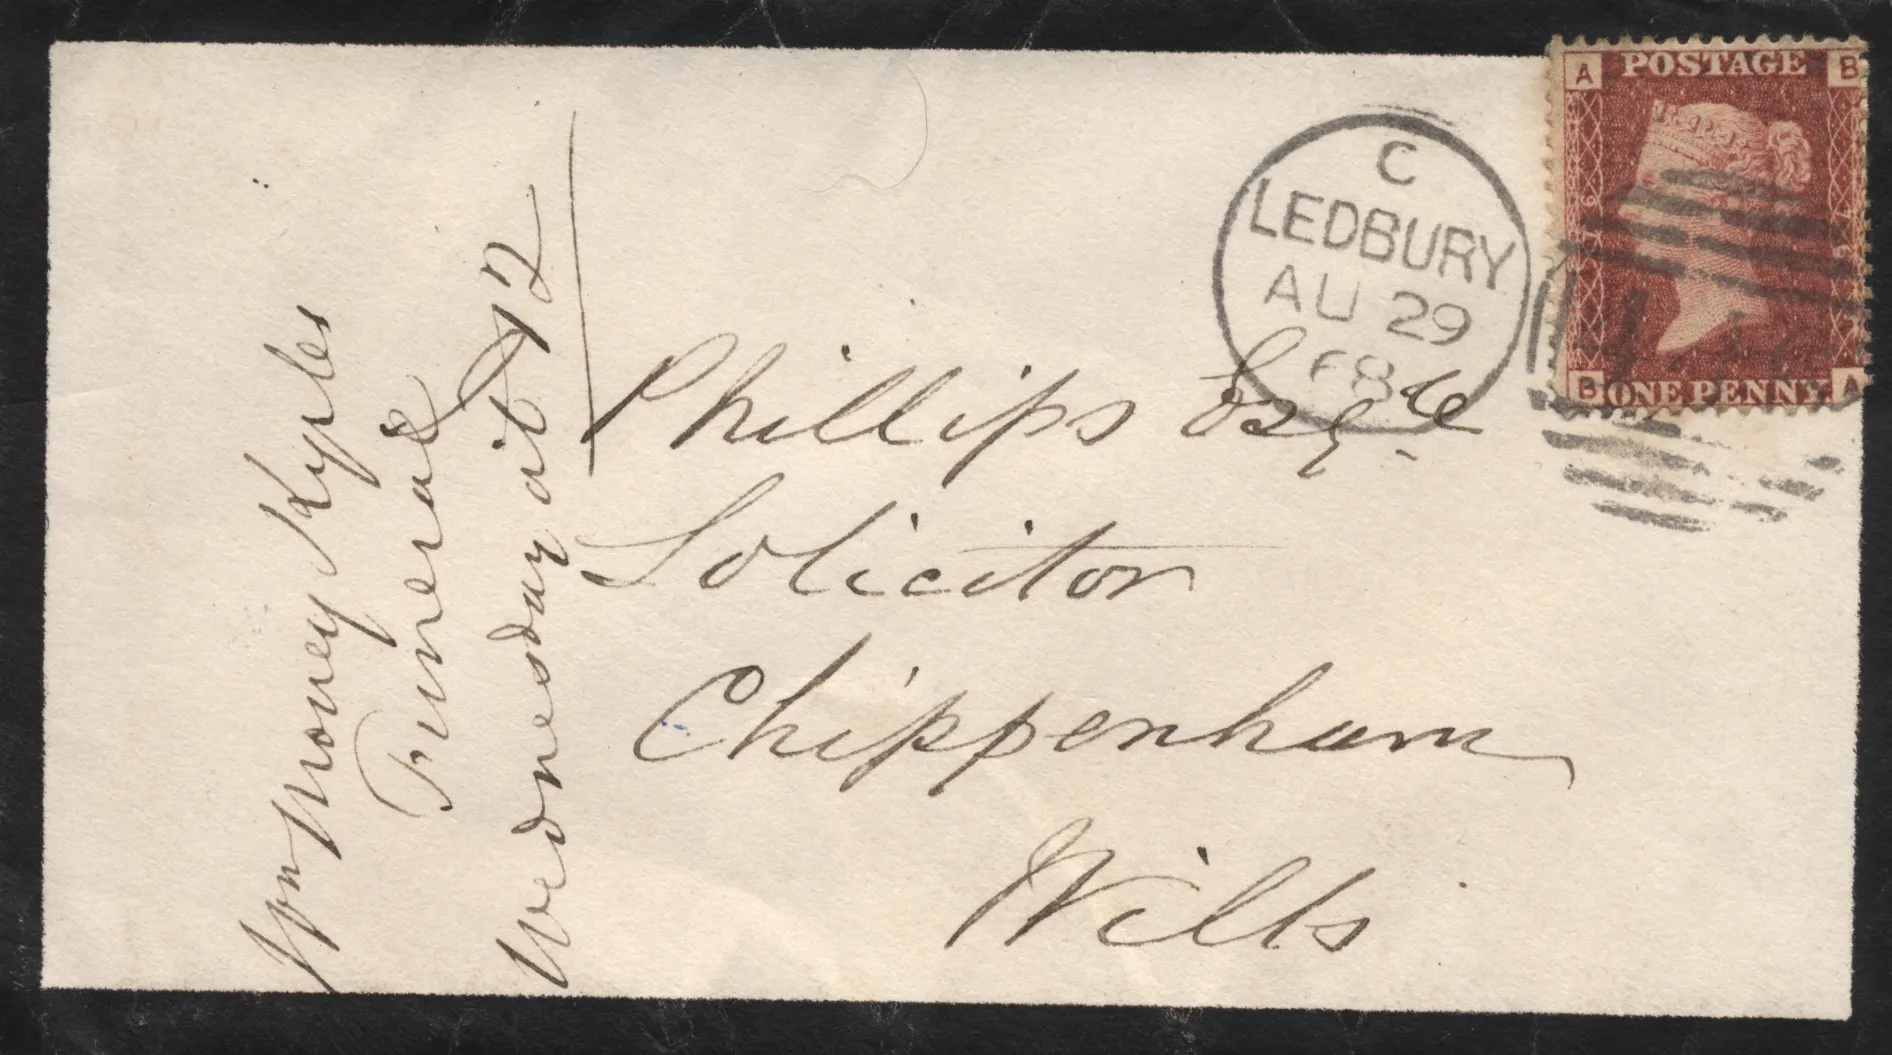 Wm Money Kyrles
Funeral
Wednesday at 12
Phillips Esqre
Solicitor
Chippenham
Wilts
C
LEDBURY
AU 29
68
A POSTAGE B
B ONE PENNY A